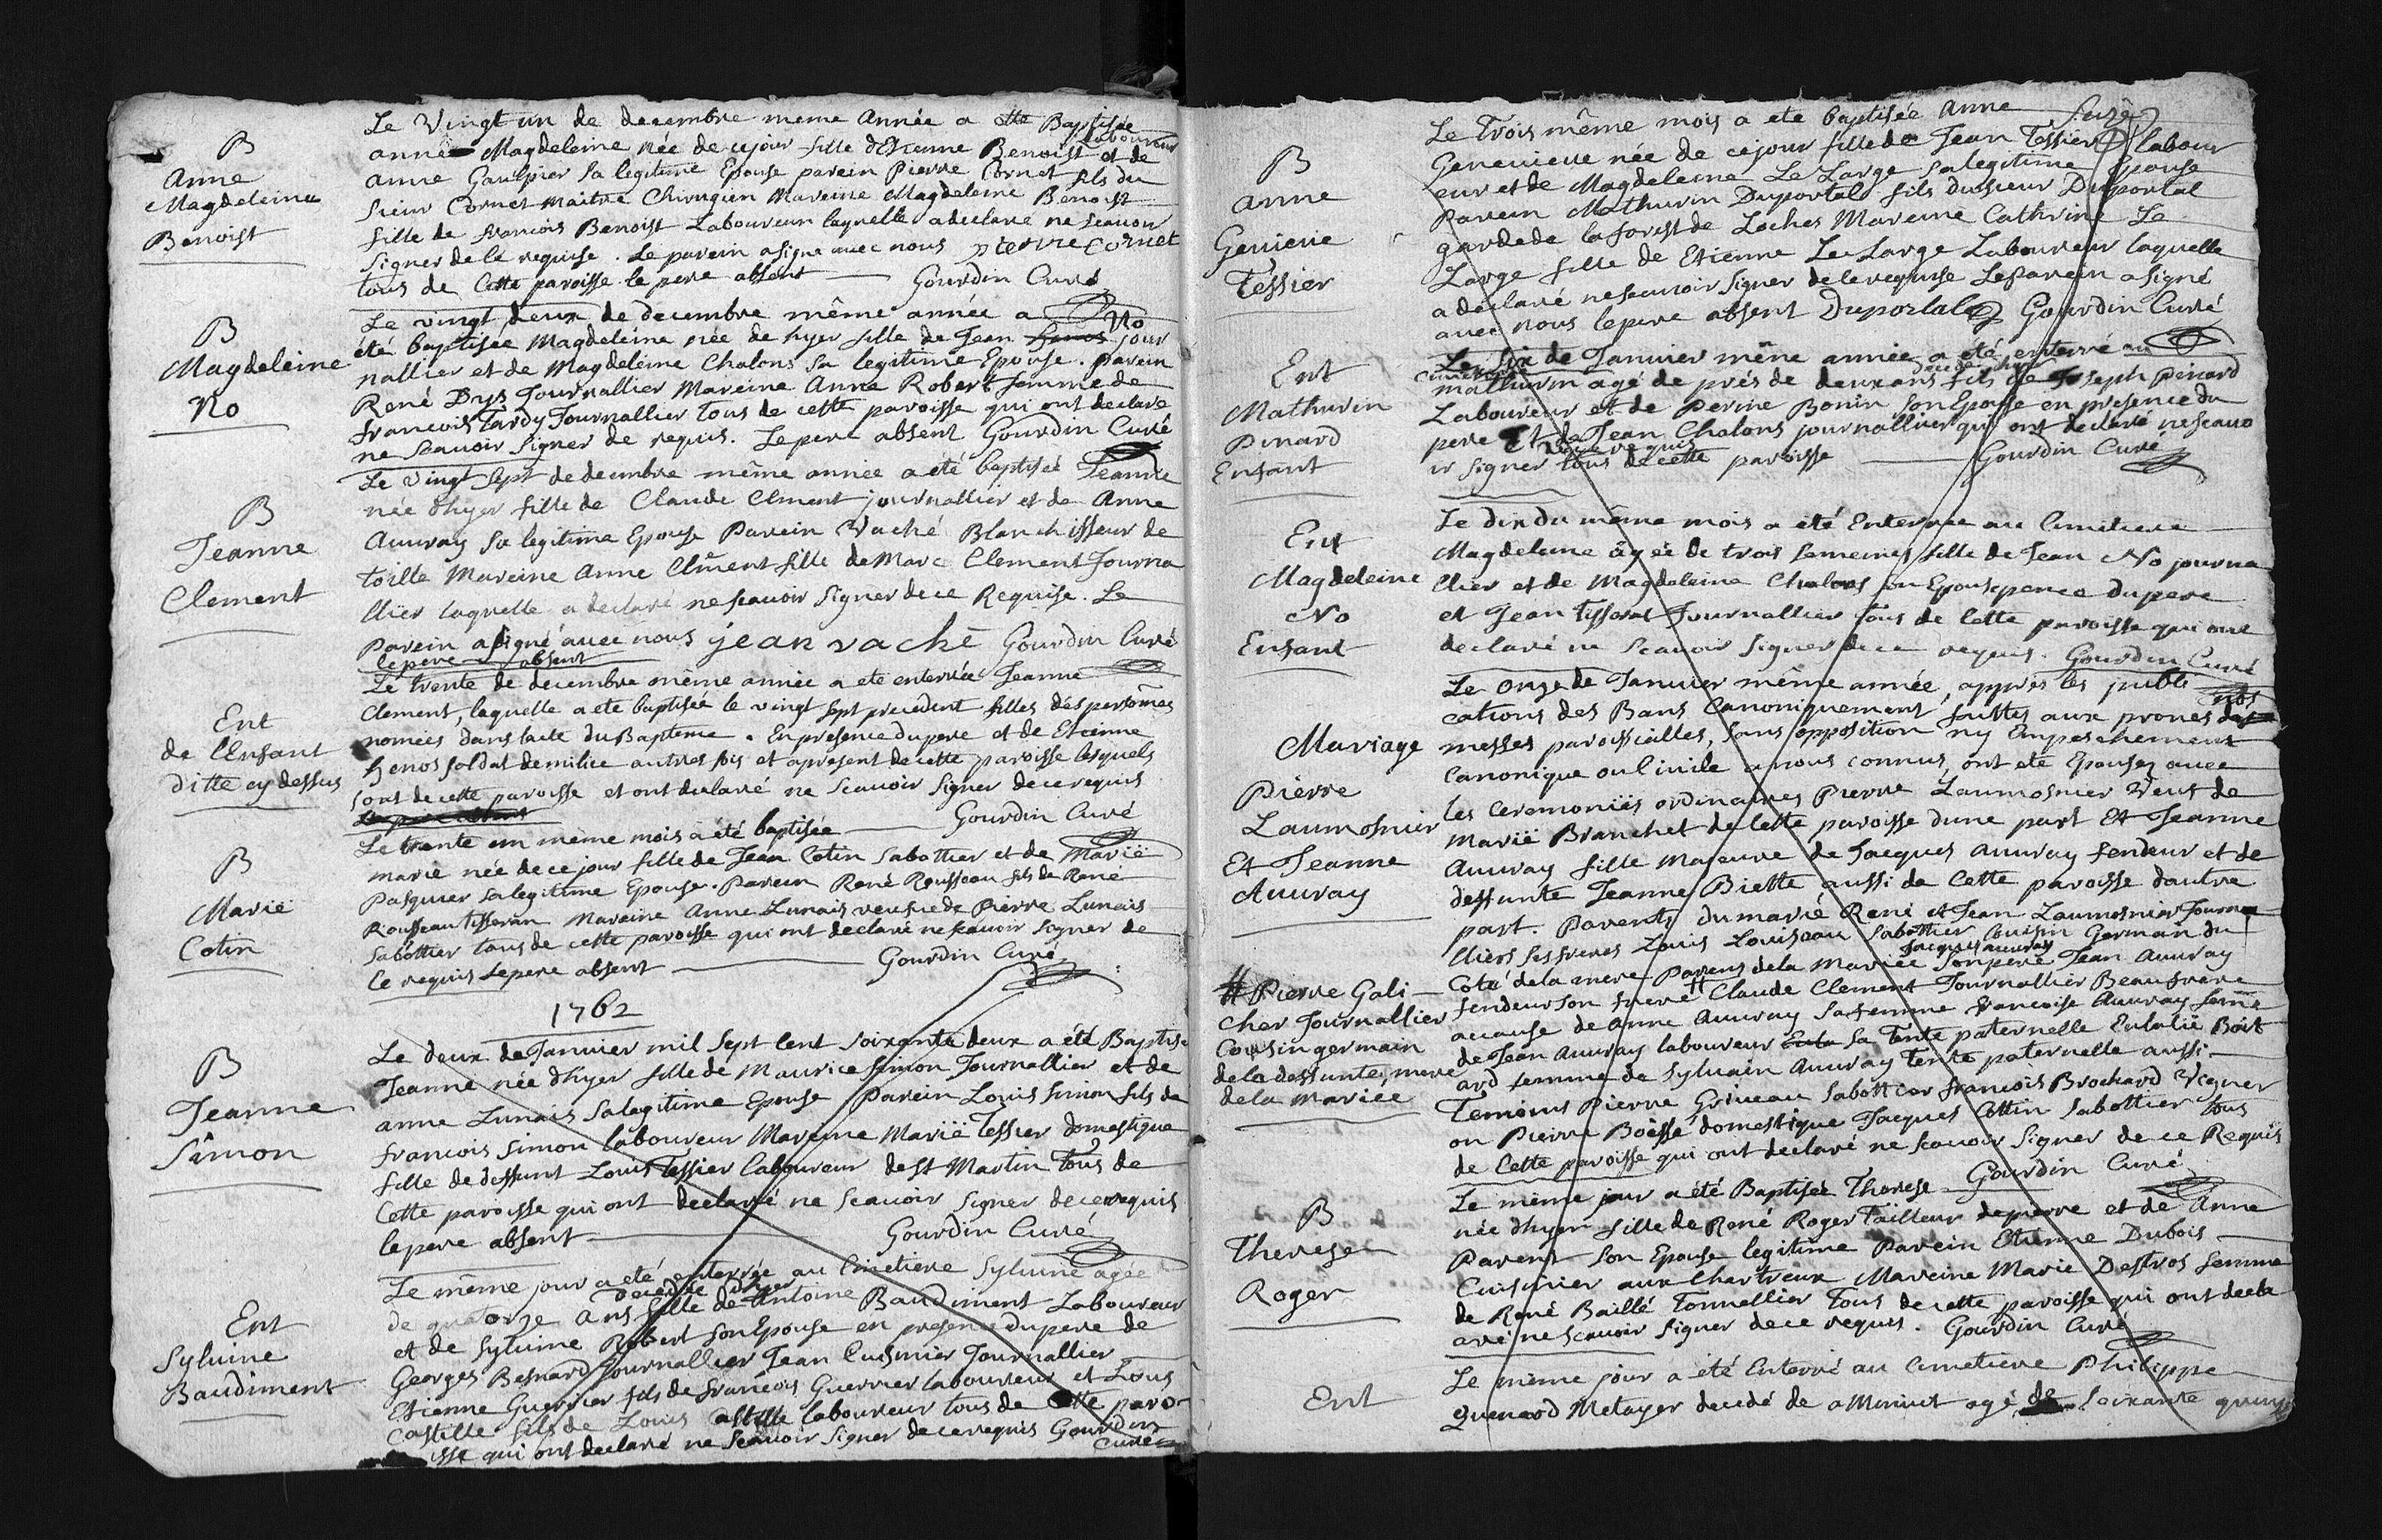 B
Anne
Magdeleine
Benoist
Le Vingt un de decembre meme Année a ette Baptisée
anne Magdeleine née de ce jour fille d'Etienne Benoist Laboureur et de
anne Gaulpier sa legitime Epouse parein Pierre Cornet fils du
Sieur Cornet maitre Chirurgien Mareine Magdeleine Benoist
fille de francois Benoist Laboureur laquelle a declaré ne scavoir
signer de le requise. Le parein a signé avec nous pierre cornet
tous de Cette paroisse le pere absent Gourdin Curé
B
Magdeleine
No
Le vingt deux de decembre même année a
été baptisée Magdeleine née de hyer fille de Jean No jour
nallier et de Magdeleine Chalons sa legitime Epouse. parein
René Drys Journallier Mareine Anne Robert femme de
francois Tardy Journallier tous de cette paroisse qui ont declaré
ne scavoir signer de requis. Le pere absent Gourdin Curé
B
Jeanne
Clement
Le vingt sept de decembre même année a été baptisée Jeanne
née d'hyer fille de Claude Clment journallier et de Anne
Auuray sa legitime Epouse Parein Vaché Blanchisseur de
toille Mareine Anne Clment fille de Marc Clement Journa
llier laquelle a declaré ne scavoir signer de ce Requise. Le
Parein a signé avec nous jean vaché Gourdin Curé
le pere absent
Ent
de l'Enfant
ditte cy dessus
Le trente de decembre même année a ete enterrée Jeanne
Clement, laquelle a ete baptisée le vingt sept precedent filles des personnes
nomées dans l'acte du Bapteme. En presence du pere et de Etienne
henos soldat de milice autres fois et apresent de cette paroisse lesquels
sont de cette paroisse et ont declaré ne scavoir signer de ce requis
Gourdin Curé
B
Marie
Cotin
Le trente un même mois a été baptisée
marie née de ce jour fille de Jean Cotin Sabottier et de Marië
Pasquier sa legitime Epouse. Parein René Rousseau fils de René
Rousseau tisseran Mareine Anne Lunais veufue de Pierre Lunais
Sabottier tous de cette paroisse qui ont declaré ne scavoir signer de
ce requis Le pere absent Gourdin Curé
1762
B
Jeanne
Simon
Le deux de Janvier mil sept cent soixante deux a été Baptisé
Jeanne née d'hyer fille de Maurice Simon Journallier et de
anne Lunais sa legitime Epouse Parein Louis Simon fils de
francois Simon laboureur Mareine Marië Tessier domestique
fille de deffunt Louis Tessier laboureur de St Martin tous de
Cette paroisse qui ont declaré ne scavoir signer de ce requis
le pere absent Gourdin Curé
Ent
Sylvine
Baudiment
Le même jour a eté enterrée au Cimetiere Sylvine agée
decedée d'hyer
de quatorze ans fille de Antoine Baudiment Laboureur
et de Sylvine Robert son Epouse en presence du pere de
Georges Besnard Journallier Jean Cuisinier Journallier
Etienne Guerrier fils de francois Guerrier laboureur et Louis
Castille fils de Louis Castille laboureur tous de Cette paro
isse qui ont declaré ne scavoir signer de ce requis Gourdin
Curé
B
anne
Genieuie
Tessier
Le Trois même mois a ete baptisée Anne
Genevieve née de ce jour fille de Jean Tessier labour
eur et de Magdeleine Le Large sa legitime Epouse
Parein Mathurin Duportal fils du sieur Duportal
garde de la forest de Loches Mareine Cathrine Le
Large fille de Etienne Le Large Laboureur laquelle
a declaré ne scavoir signer de le requise Le Parein a signé
avec nous le pere absent Duportal Gourdin Curé
Ent
Mathurin
Pinard
Enfant
Le six de Janvier même année a été enterré au
cimetiere
mathurin agé de prés de deux ans decedé hyer fils de Joseph Pinard
Laboureur et de Perine Bonin son Epouse en presence du
pere Et de Jean Chalons journallier qui ont declaré ne scavo
ir signer de ce requis tous de cette paroisse Gourdin Curé
Ent
Magdeleine
No
Enfant
Le dix du même mois a été Enterrée au Cimetiere
Magdeleine âgée de trois semeines fille de Jean No journa
llier et de Magdeleine Chalons son Epouse pence du pere
et Jean Tisserat Journallier tous de Cette paroisse qui ont
declaré ne scavoir signer de ce requis. Gourdin Curé
Mariage
Pierre
Laumosnier
Et Jeanne
Auuray
Le Onze de Janvier même année, appres les publi
cations des Bans Canoniquement faittes aux prones de nos
messes paroissialles, sans opposition ny Empeschement
Canonique ou Civile a nous connus, ont eté Epousez avec
les ceremoniës ordinaires Pierre Laumosnier Veuf de
Marië Branchet de Cette paroisse d'une part Et Jeanne
Auuray fille Majeure de Jacques Auuray fendeur et de
deffunte Jeanne Biette aussi de Cette paroisse d'autre
part. Parents du marié René et Jean Laumosnier Journa
lliers ses freres Louis Louiseau Sabottier Cousin Germain du
Coté de la mere Parens de la Mariée Jacques auuray son pere Jean Auuray
fendeur son frere # Claude Clement Journallier Beau frere
a cause de Anne Auuray sa femme francoise Auuray feme
de Jean Auuray laboureur sa Tente paternelle Eulalië Boit
ard femme de Sylvain Auuray tente paternelle aussi
Temoins Pierre Griveau Sabottier francois Brochard Vigner
on Pierre Boëssé domestique Jacques Cottin Sabottier tous
de Cette paroisse qui ont declaré ne scavoir signer de ce Requis
Gourdin Curé
# Pierre Gali
cher Journallier
Cousin germain
de la deffunte mere
de la Mariée
B
Therese
Roger
Le même jour a été Baptisée Therese
née d'hyer fille de René Roger Tailleur de pierre et de Anne
Parent son Epouse legitime Parein Etienne Dubois
Cuisinier aux Chartreux Mareine Marie Destros femme
de René Baillé Tonnellier Tous de cette paroisse qui ont decla
aré ne scavoir signer de ce requis. Gourdin Curé
Ent
Le même jour a été Enterré au Cimetiere Philippe
Guenard Metayer decedé de a Minuit agé de soixante quinze